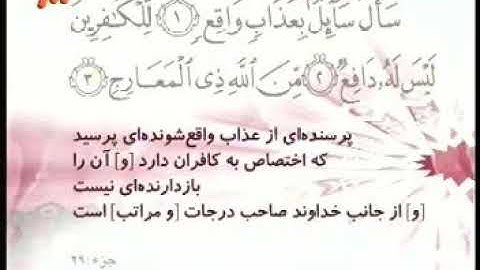 سَأَلَ سَآئِلٌۢ بِعَذَابٍ وَاقِعٍ ۝١ لِّلْكَـٰفِرِينَ
لَيْسَ لَهُۥ دَافِعٌ ۝٢ مِّنَ ٱللَّهِ ذِى ٱلْمَعَارِجِ ۝٣
پرسنده‌ای از عذاب واقع‌شونده‌ای پرسید
که اختصاص به کافران دارد [و] آن را
بازدارنده‌ای نیست
[و] از جانب خداوند صاحب درجات [و مراتب] است
جزء:۲۹